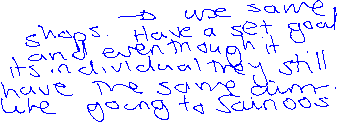 → use same
shops. Have a set goal
and eventhough it
its individual they still
have the same aim.
like going to Sainos